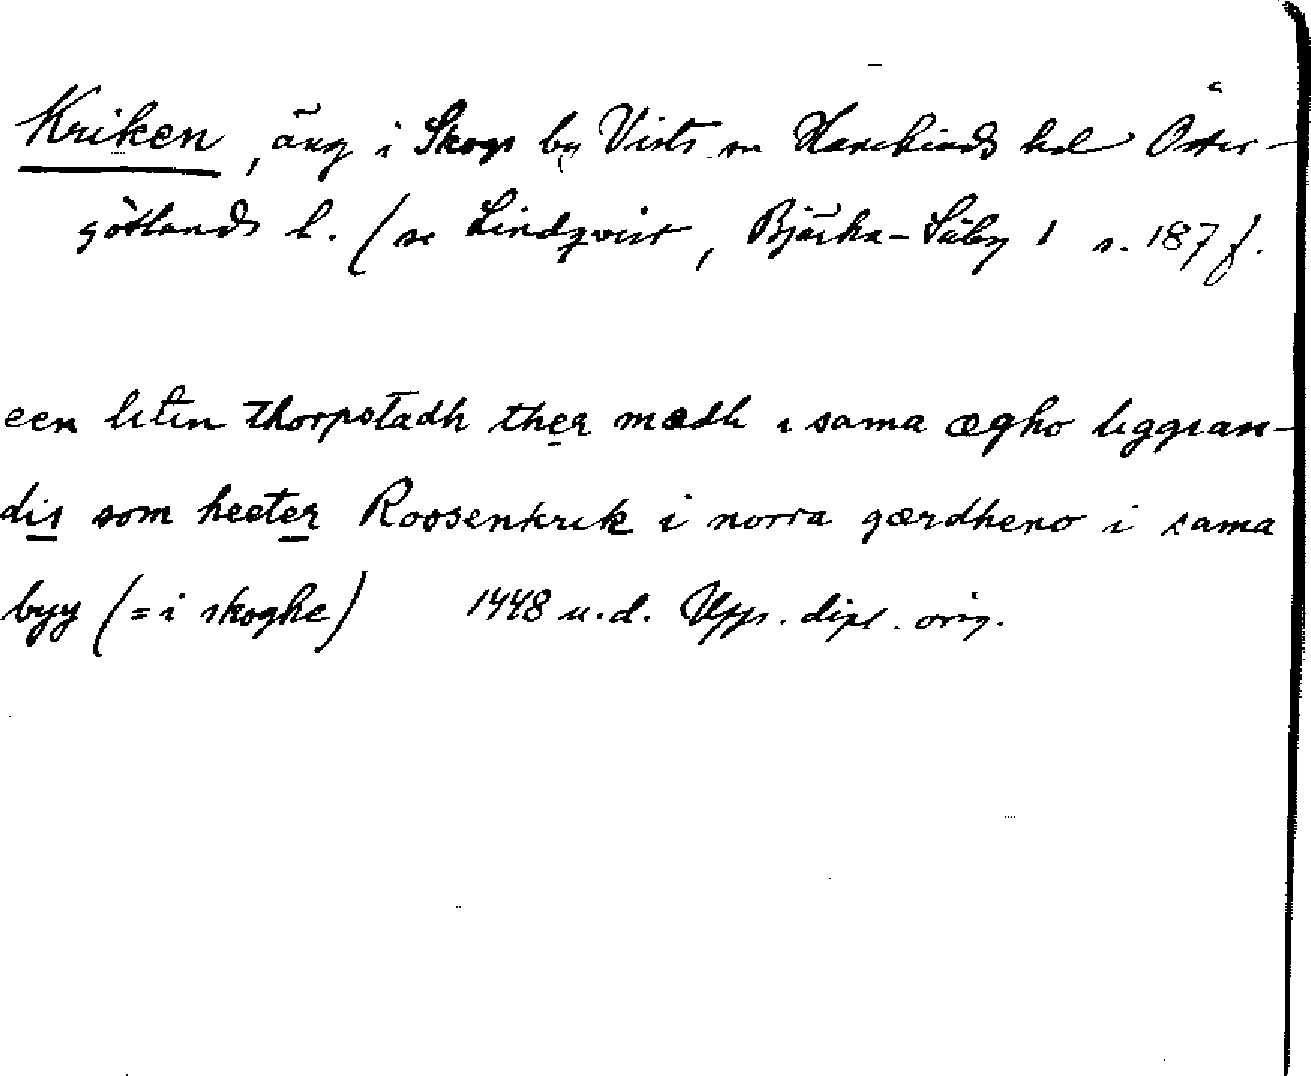 Kriken, äng i Skogs by Vists sn Hanekinds hd Öster-
götlands l. (se Lindqvist, Bjärka-Säby 1 s. 187 f.
een liten thorpstadh ther mædh i sama ægho liggian-
dis som heeter Roosenkrik i norra gærdheno i sama
byy (= i skoghe) 1448 u.d. Upps. dipl. orig.